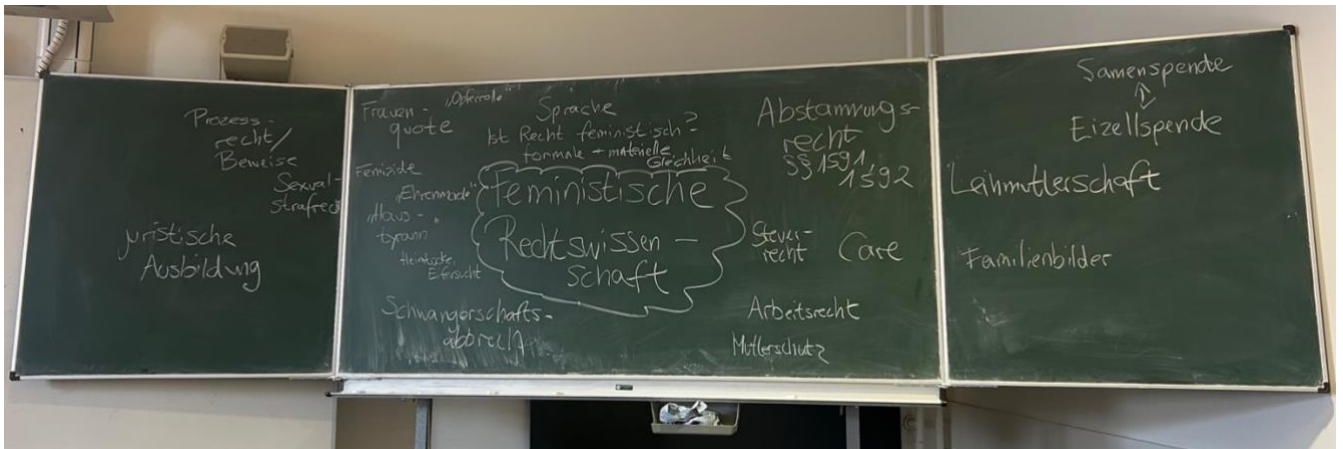 Prozess-
recht/
Beweise
Sexual-
strafrec
juristische
Ausbildung
Frauen-
quote
"Opferrolle"
Sprache
Ist Recht feministisch?
formale + materielle
Gleichheit
Femizide
"Ehrenmorde"
"Haus-
tyrann"
Heimtücke,
Eifersucht
Feministische
Rechtswissen-
schaft
Schwangerschafts-
Abstammungs-
recht
§§ 1591,
1592
Steuer-
recht
Care
Arbeitsrecht
Mutterschutz
Samenspende
Eizellspende
Leihmutterschaft
Familienbilder